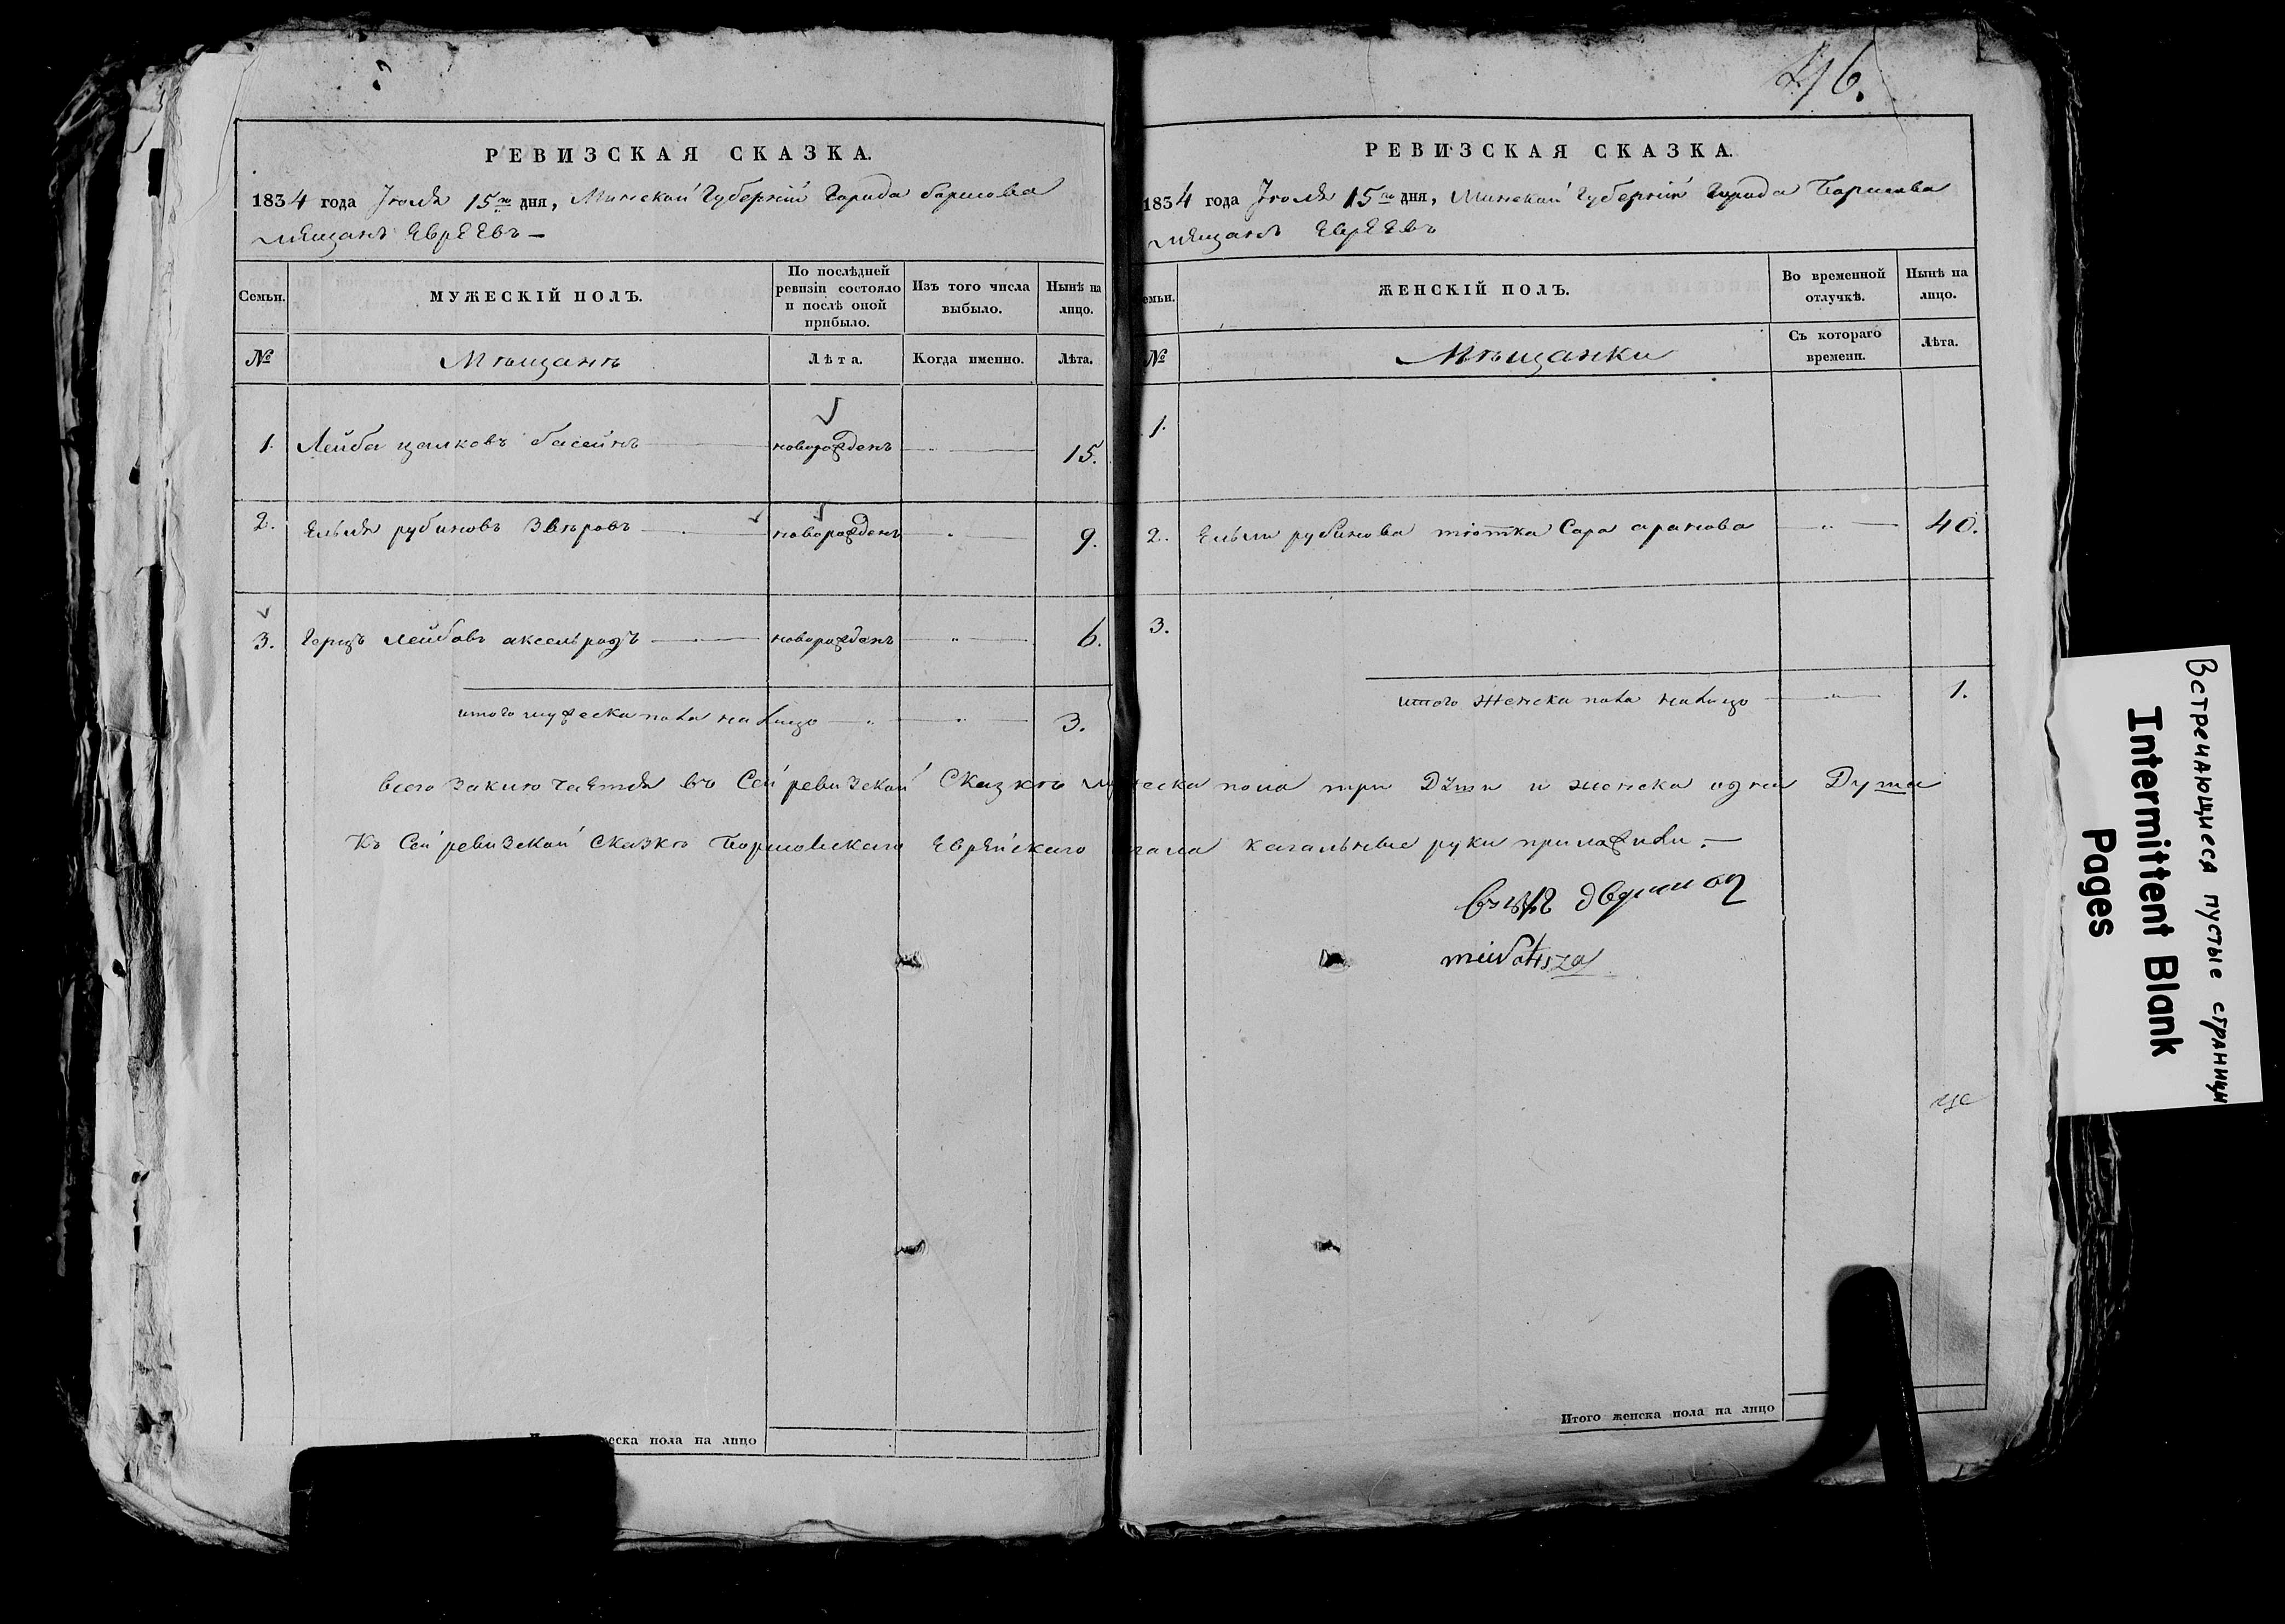 46.
РЕВИЗСКАЯ СКАЗКА.
1834 года Іюля 15го дня, Минской Губерніи Города Борисова
мещанъ Евреевъ —
Семьи.
МУЖЕСКІЙ ПОЛЪ.
По послѣдней ревизіи состояло и послѣ оной прибыло.
Изъ того числа выбыло.
Нынѣ на лицо.
№
Мѣщанѣ
Лѣта.
Когда именно.
Лѣта.
1. Лейба цалковъ басейнъ новорожденъ 15.
2. Ельля рубиновъ Звѣровъ новорожденъ 9.
3. Герцъ Лейбовъ аксельродъ новорожденъ 6.
итого мужеска пола налицо 3.
РЕВИЗСКАЯ СКАЗКА.
1834 года Іюля 15го дня, Минской Губерніи Города Борисова
мещанъ Евреевъ
емьи.
ЖЕНСКІЙ ПОЛЪ.
Во временной отлучкѣ.
Нынѣ на лицо.
№
Мѣщанки
Съ котораго времени.
Лѣта.
1.
2. Ельли рубинова тіотка Сара аронова 40.
3.
итого женска пола налицо 1.
всего заключается въ Сей ревизской Сказкѣ мужеска пола три Души и женска одна Душа
Къ Сей ревизской Сказкѣ Борисовскаго Еврейскаго кагала кагальные руки приложили. —
еска пола на лицо
Итого женска пола на лицо
Встречающиеся пустые страницы
Intermittent Blank
Pages